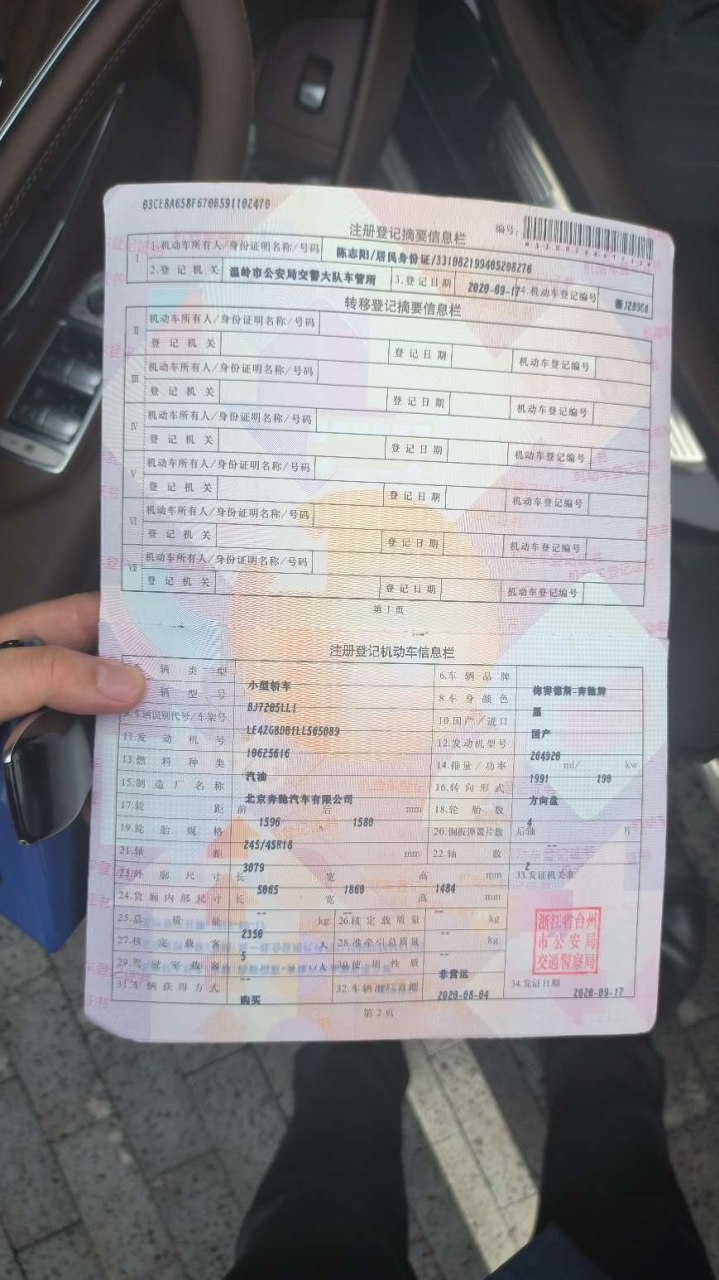 03CE8A658F6708591102470
注册登记摘要信息栏
编号:
I 1.机动车所有人/身份证明名称/号码 陈志阳/居民身份证/331082199405208276
2.登记机关 温岭市公安局交警大队车管所 3.登记日期 2020-09-17 4.机动车登记编号
转移登记摘要信息栏
II 机动车所有人/身份证明名称/号码
登记机关 登记日期 机动车登记编号
III 机动车所有人/身份证明名称/号码
登记机关 登记日期 机动车登记编号
IV 机动车所有人/身份证明名称/号码
登记机关 登记日期 机动车登记编号
V 机动车所有人/身份证明名称/号码
登记机关 登记日期 机动车登记编号
VI 机动车所有人/身份证明名称/号码
登记机关 登记日期 机动车登记编号
VII 机动车所有人/身份证明名称/号码
登记机关 登记日期 机动车登记编号
第1页
注册登记机动车信息栏
辆类型 小型轿车 6.车辆品牌 梅赛德斯-奔驰牌
辆型号 BJ7205LL1 8.车身颜色 黑
车辆识别代号/车架号 LE4ZG8DB1LL565089 10.国产/进口 国产
11.发动机号 10625616 12.发动机型号 264920
13.燃料种类 汽油 14.排量/功率 1991 ml/ 190 kw
15.制造厂名称 北京奔驰汽车有限公司 16.转向形式 方向盘
17.轮距 前 1596 后 1580 mm 18.轮胎数 4
19.轮胎规格 245/45R18 20.钢板弹簧片数 后轴 -- 片
21.轴距 3079 mm 22.轴数 2
23.外廓尺寸 长 5065 宽 1860 高 1484 mm 33.发证机关章
24.货厢内部尺寸 长 -- 宽 -- 高 -- mm
25.总质量 2350 kg 26.核定载质量 -- kg
27.核定载客 5 人 28.准牵引总质量 -- kg
29.驾驶室载客 -- 人 30.使用性质 非营运
31.车辆获得方式 购买 32.车辆出厂日期 2020-08-04 34.发证日期 2020-09-17
浙江省台州
市公安局
交通警察局
第2页